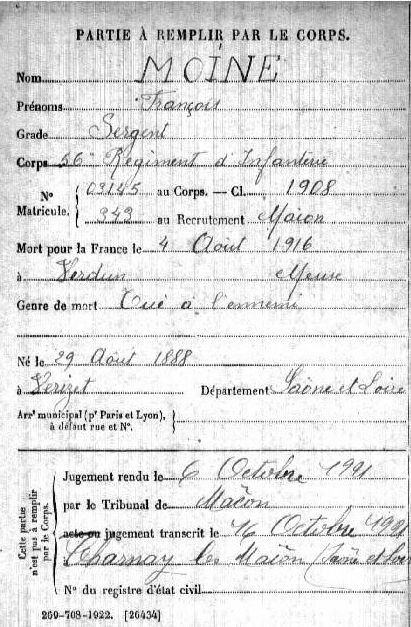 PARTIE À REMPLIR PAR LE CORPS.
Nom MOÏNE
Prénoms François
Grade Sergent
Corps 56e Régiment d'Infanterie
N° Matricule. 03145 au Corps. — Cl. 1908
342 au Recrutement Macon
Mort pour la France le 4 Août 1916
à Verdun Meuse
Genre de mort Tué à l'ennemi
Né le 29 Août 1888
à Verizet Département Saône et Loire
Arrt municipal (pr Paris et Lyon), à défaut rue et N°.
Cette partie n'est pas à remplir par le Corps.
Jugement rendu le 6 Octobre 1921
par le Tribunal de Macôn
acte ou jugement transcrit le 16 Octobre 1921
Charnay les Macôn (Saône et Loire
N° du registre d'état civil
269-708-1922. [26434]